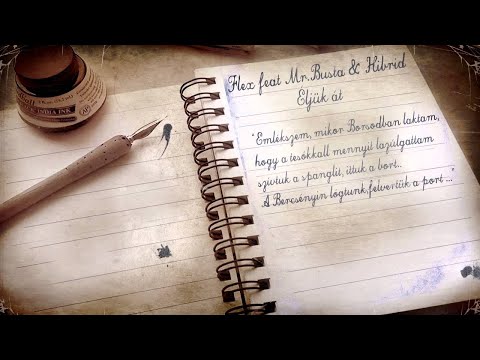 INDIA INK
Flex feat Mr.Busta & Hibrid
Éljük át
"Emlékszem, mikor Borsodban laktam,
hogy a tesókkall mennyit lazúlgattam
szívtuk a spanglit, ittuk a bort..
A Bercsényin lógtunk,felvertük a port ..."